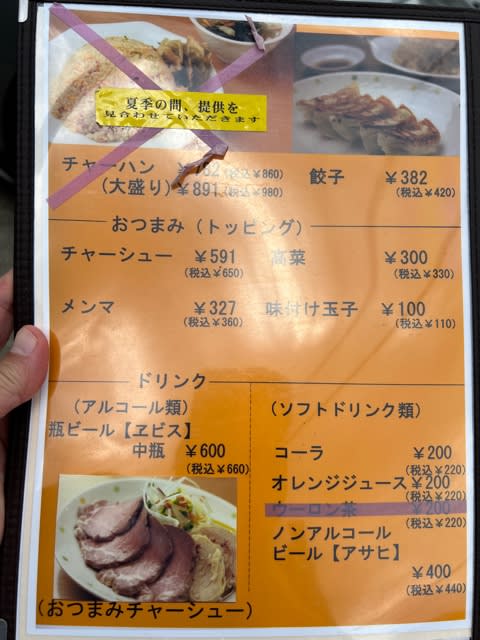 夏季の間、提供を
見合わせていただきます
チャーハン ¥782(税込¥860)
(大盛り)¥891(税込¥980)
餃子 ¥382
(税込¥420)
おつまみ(トッピング)
チャーシュー ¥591
(税込¥650)
高菜 ¥300
(税込¥330)
メンマ ¥327
(税込¥360)
味付け玉子 ¥100
(税込¥110)
ドリンク
(アルコール類)
瓶ビール【ヱビス】
中瓶 ¥600
(税込¥660)
(おつまみチャーシュー)
(ソフトドリンク類)
コーラ ¥200
(税込¥220)
オレンジジュース¥200
(税込¥220)
ウーロン茶 ¥200
(税込¥220)
ノンアルコール
ビール【アサヒ】
¥400
(税込¥440)